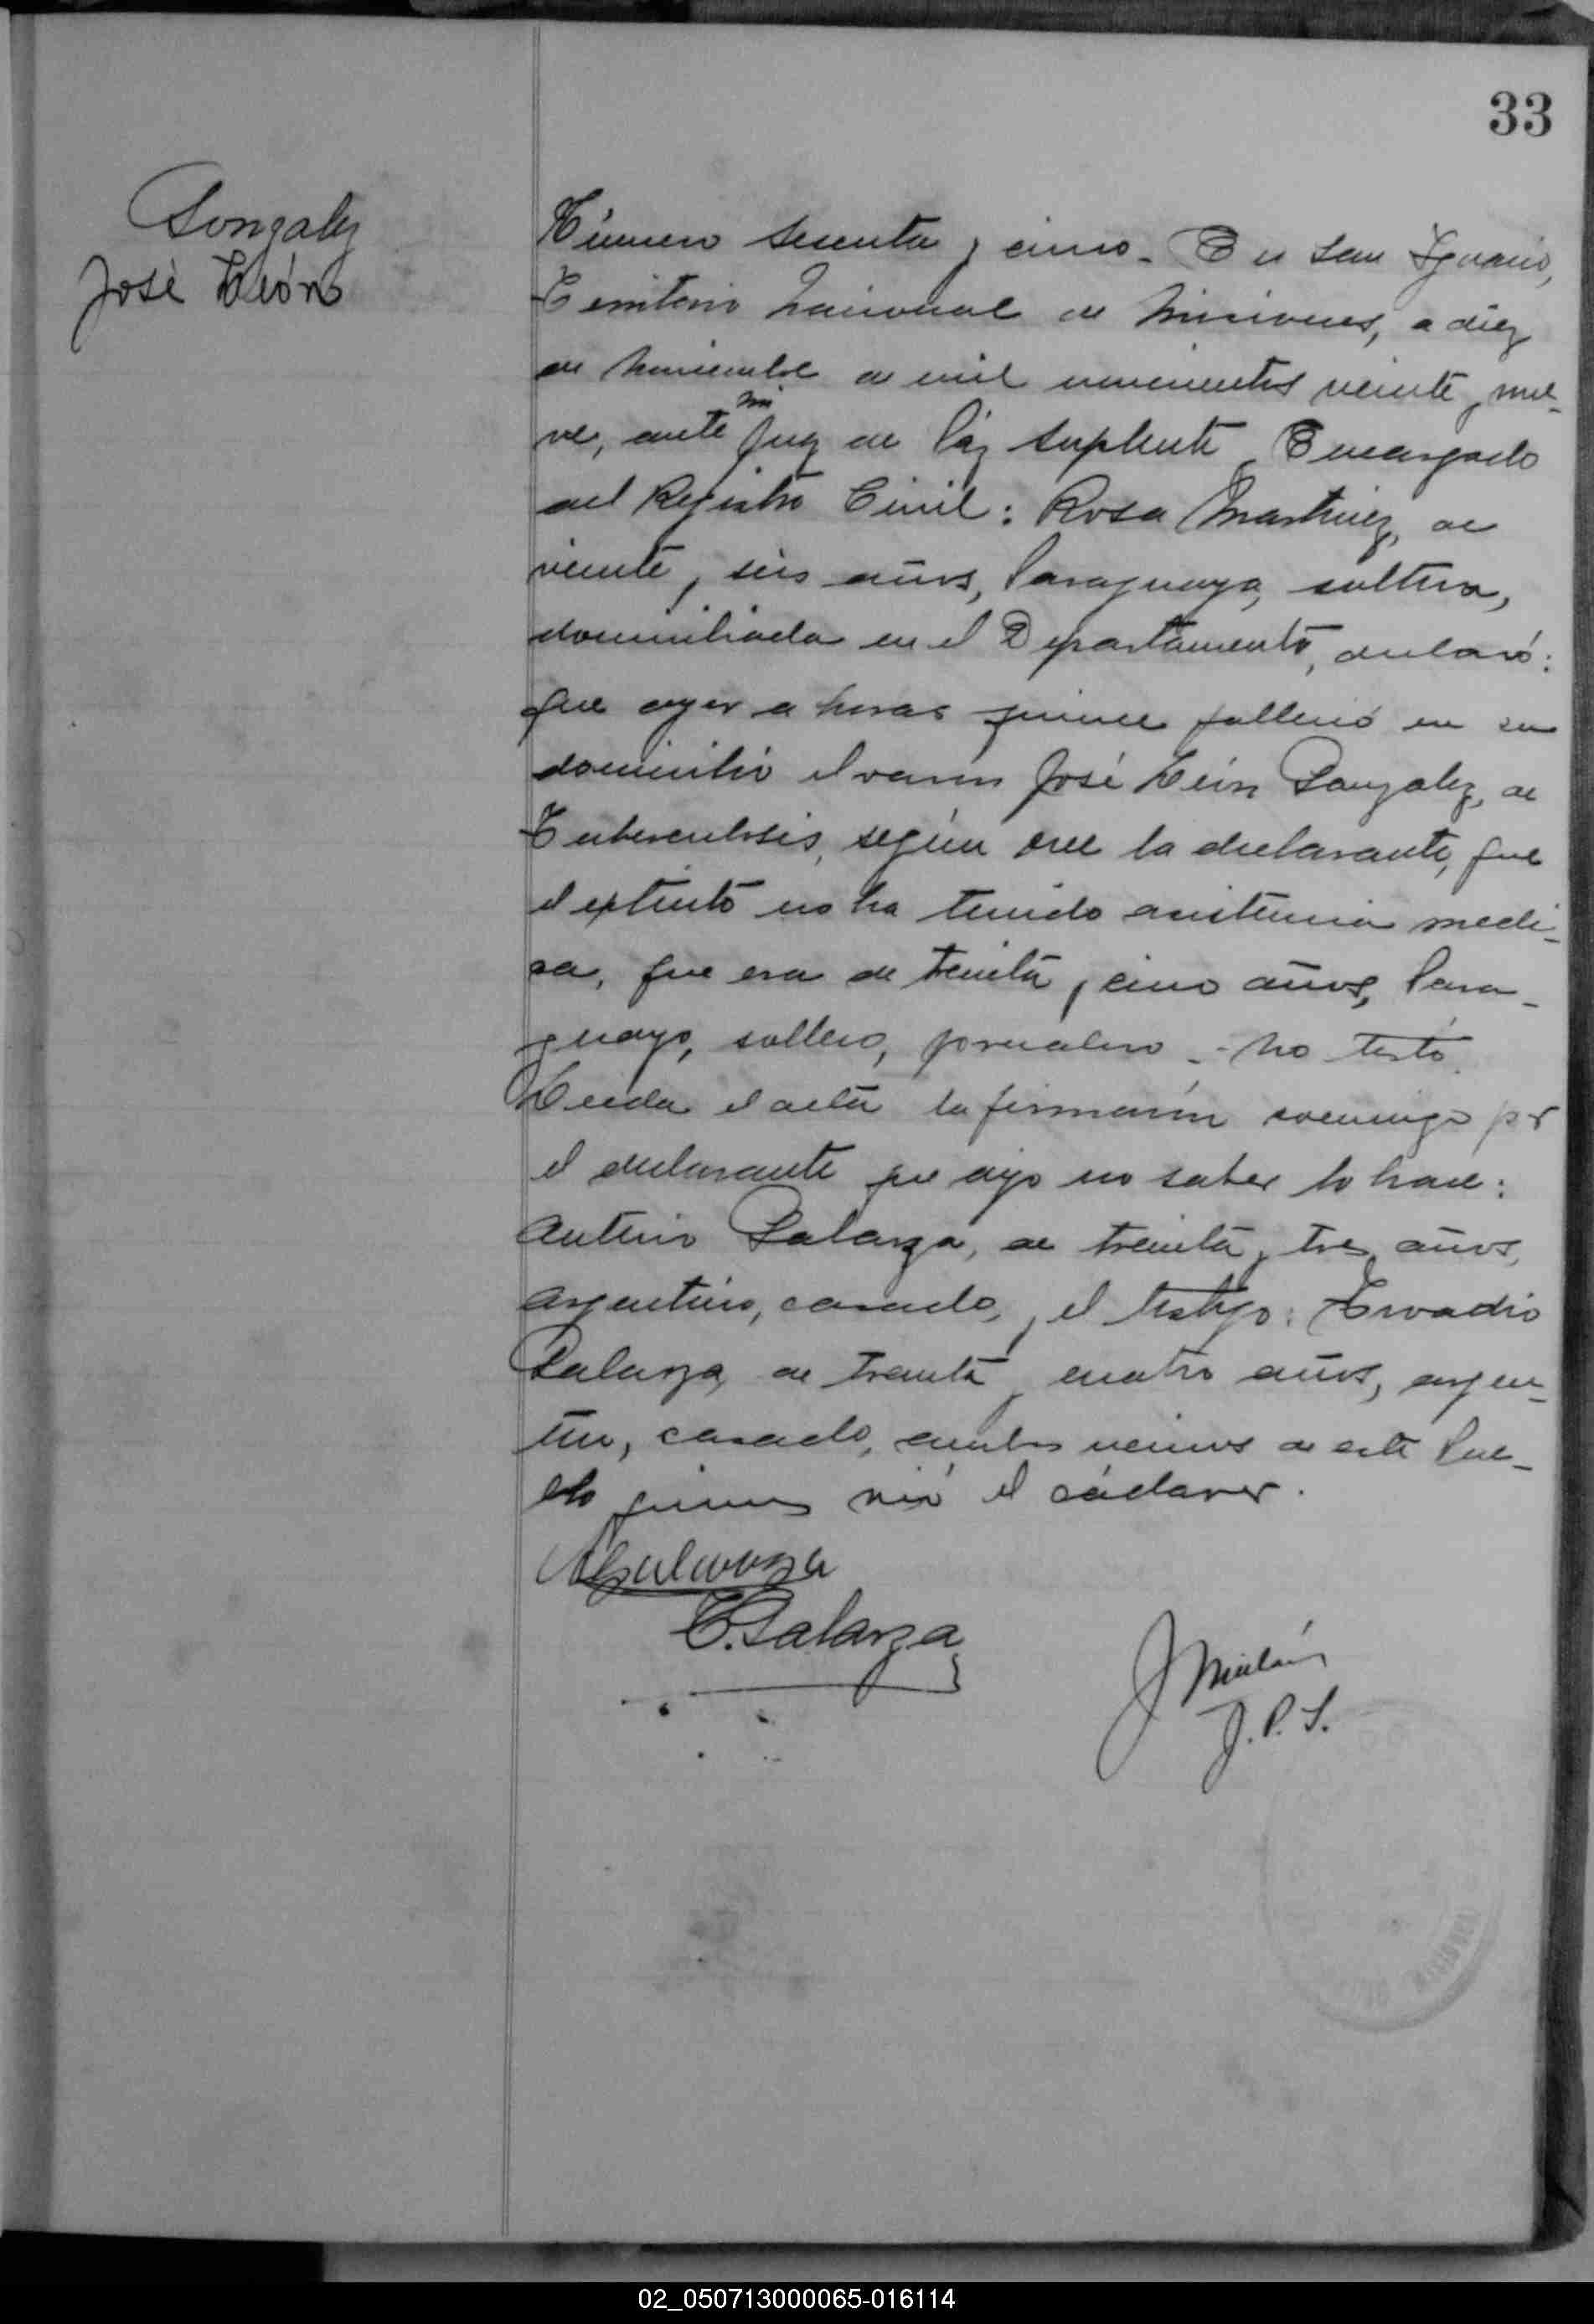 33
Gonzalez
José León
Número sesenta y cinco_ En San Ignacio,
Territorio Nacional de Misiones, a diez
de Noviembre de mil novecientos veinte y nue_
ve, ante mi Juez de Páz Suplente y Encargado
del Registro Civil: Rosa Martinez, de
veinte y seis años, Paraguaya, soltera,
domiciliada en el Departamento, declaró:
que ayer a horas quince falleció en su
domicilio el varon José León Gonzalez, de
Tuberculosis, según cree la declarante, que
el extinto no ha tenido asistencia medi_
ca, que era de treinta y cinco años, Para_
guayo, soltero, jornalero _ No testó.
Leida el acta la firmarón conmigo por
el declarante que dijo no saber lo hace:
Galarza, de treinta y tres años,
argentino, casado, y el testigo:
Galarza, de treinta y cuatro años, argen_
tino, casado, ambos vecinos de este Pue_
blo quienes vió el cádaver.
Galarza
J.P.S.
02_050713000065-016114